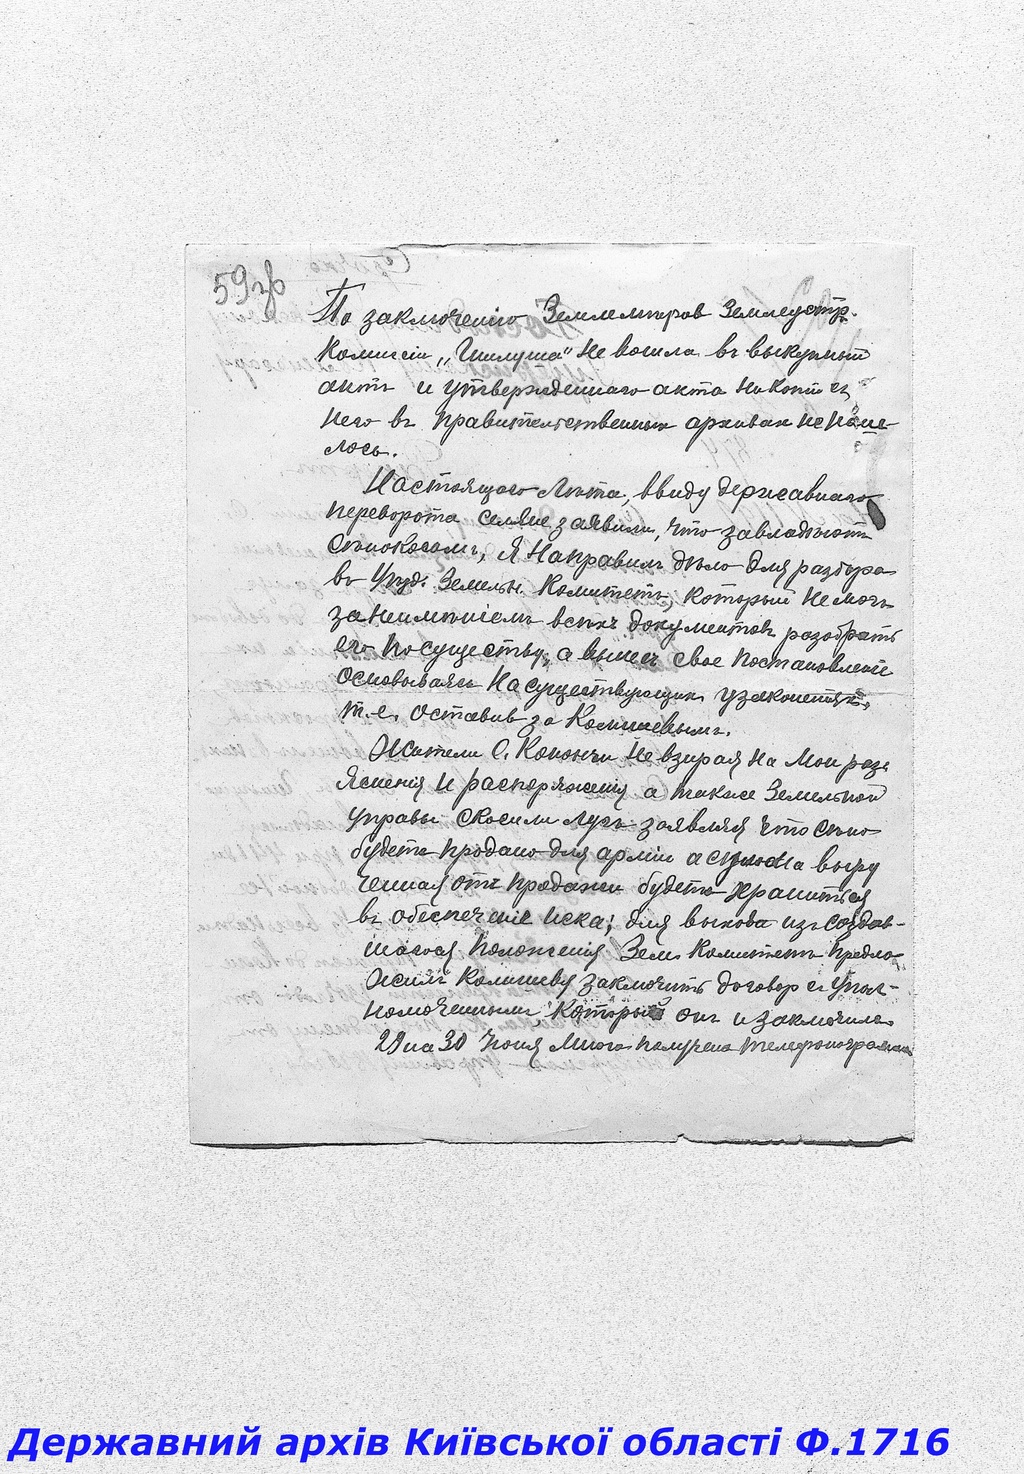 59зв
По заключенію Землемеров Землеустр.
Комисіи „Шилуша" не вошла въ выкупный
актъ и утвержденнаго акта ни копіи съ
него въ правительственных архивах не наше-
лось.
Настоящаго лѣта, ввиду державнаго
переворота селяне заявили, что завладѣютъ
сѣнокосомъ, я направилъ дѣло для разбора
въ Уѣзд. Земельн. Комитетъ, который не могъ
за неимѣніемъ всѣхъ документов разобрать
его по существу, а вынес свое постановленіе
основываясь на существующих узаконениях,
т.е. оставив за Комишевымъ.
Жители с. Канончи не взирая на мои раз
яснения и распоряжения а также Земельной
управы скосили лугъ заявляя что сѣно
будетъ продано для арміи а сумма выру
ченная отъ продажи будетъ храниться
въ обеспечение иска; для выхода изъ создав-
шагося положения Зем. Комитетъ предло
жилъ Комишеву заключить договор съ упол-
номоченными который он и заключилъ
29 на 30 Іюня мною получена телефонограмма
Державний архів Київської області Ф.1716